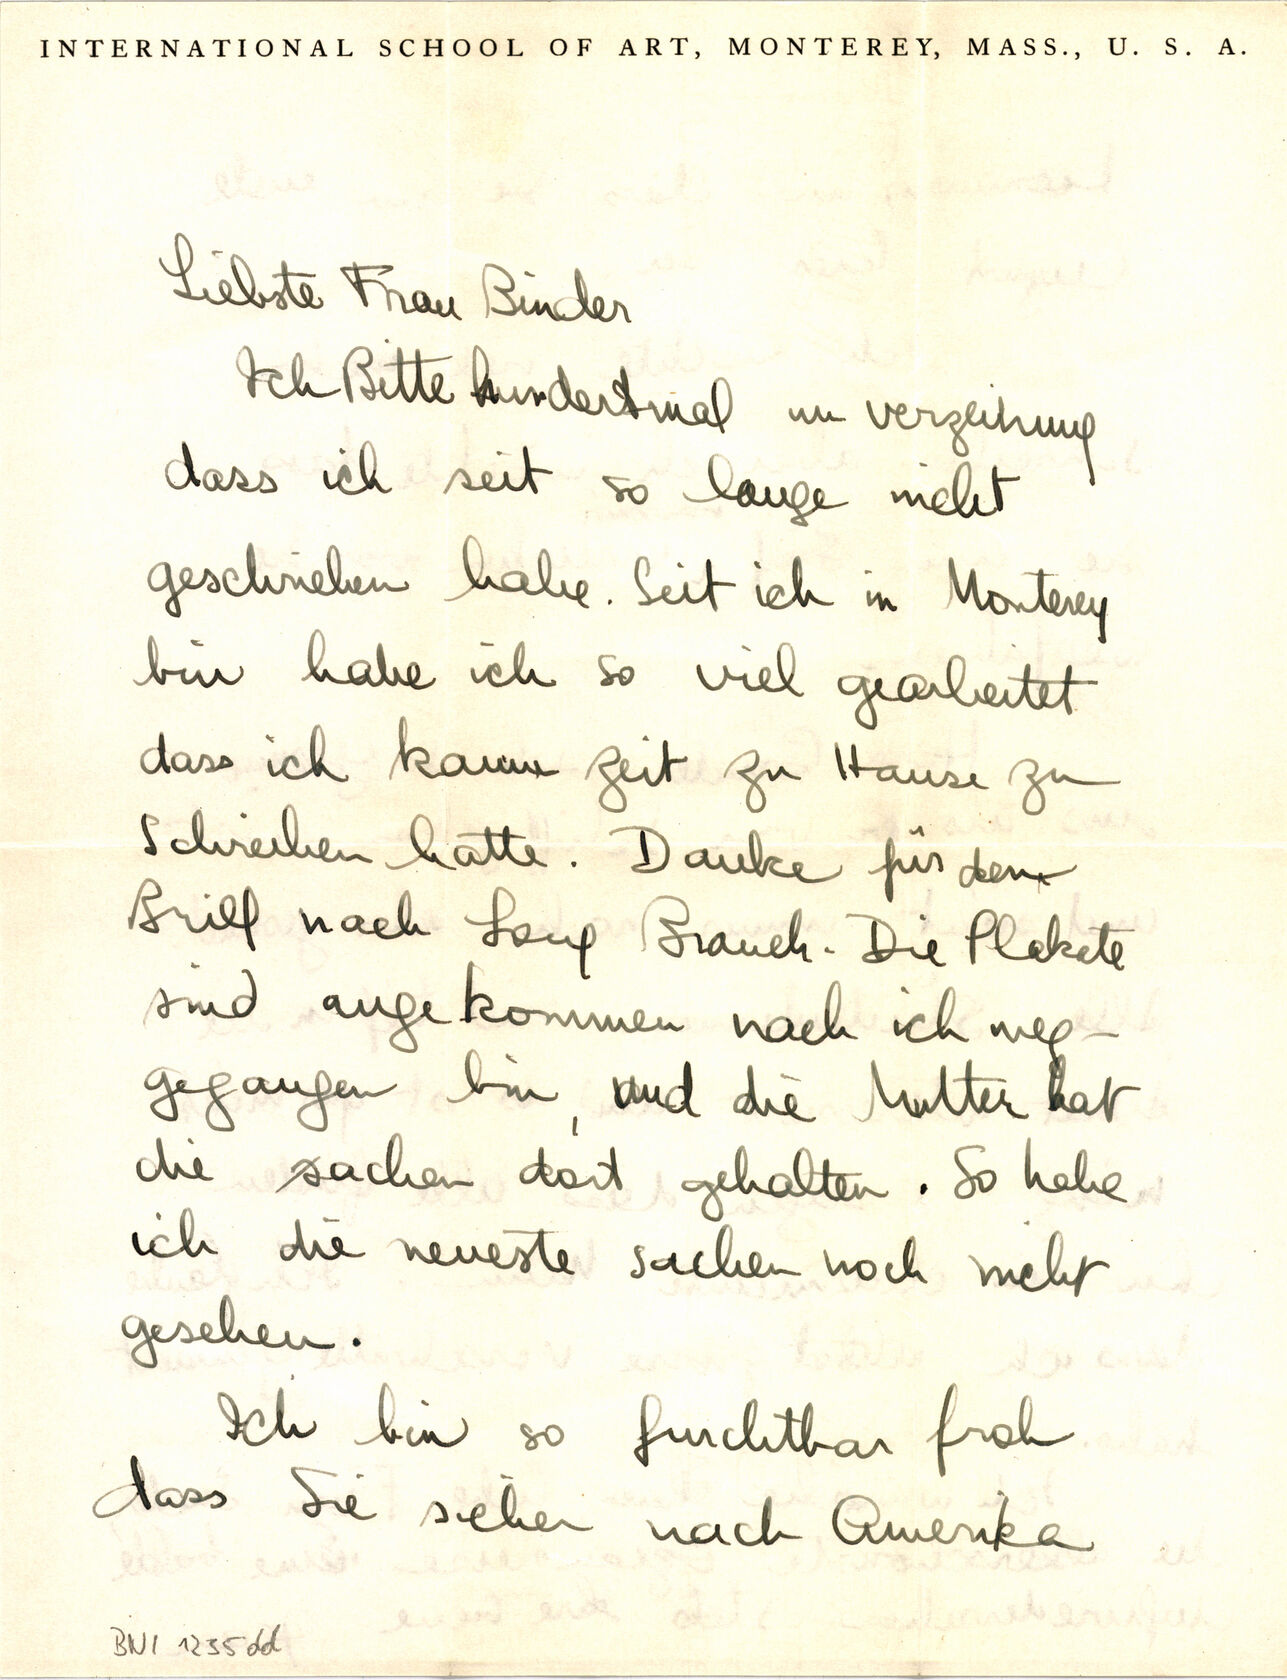 INTERNATIONAL SCHOOL OF ART, MONTEREY, MASS., U. S. A.
Liebste Frau Binder
Ich Bitte hundertmal um verzeihung
dass ich seit so lange nicht
geschrieben habe. Seit ich in Monterey
bin habe ich so viel gearbeitet
dass ich kaum zeit zu Hause zu
Schreiben hatte. Danke für den
Brief nach Long Branch. Die Plakate
sind angekommen nach ich weg-
gegangen bin, und die Mutter hat
die sachen dort gehalten. So habe
ich die neueste sachen noch nicht
gesehen.
Ich bin so furchtbar froh
dass Sie sicher nach Amerika
BNI 1235dd